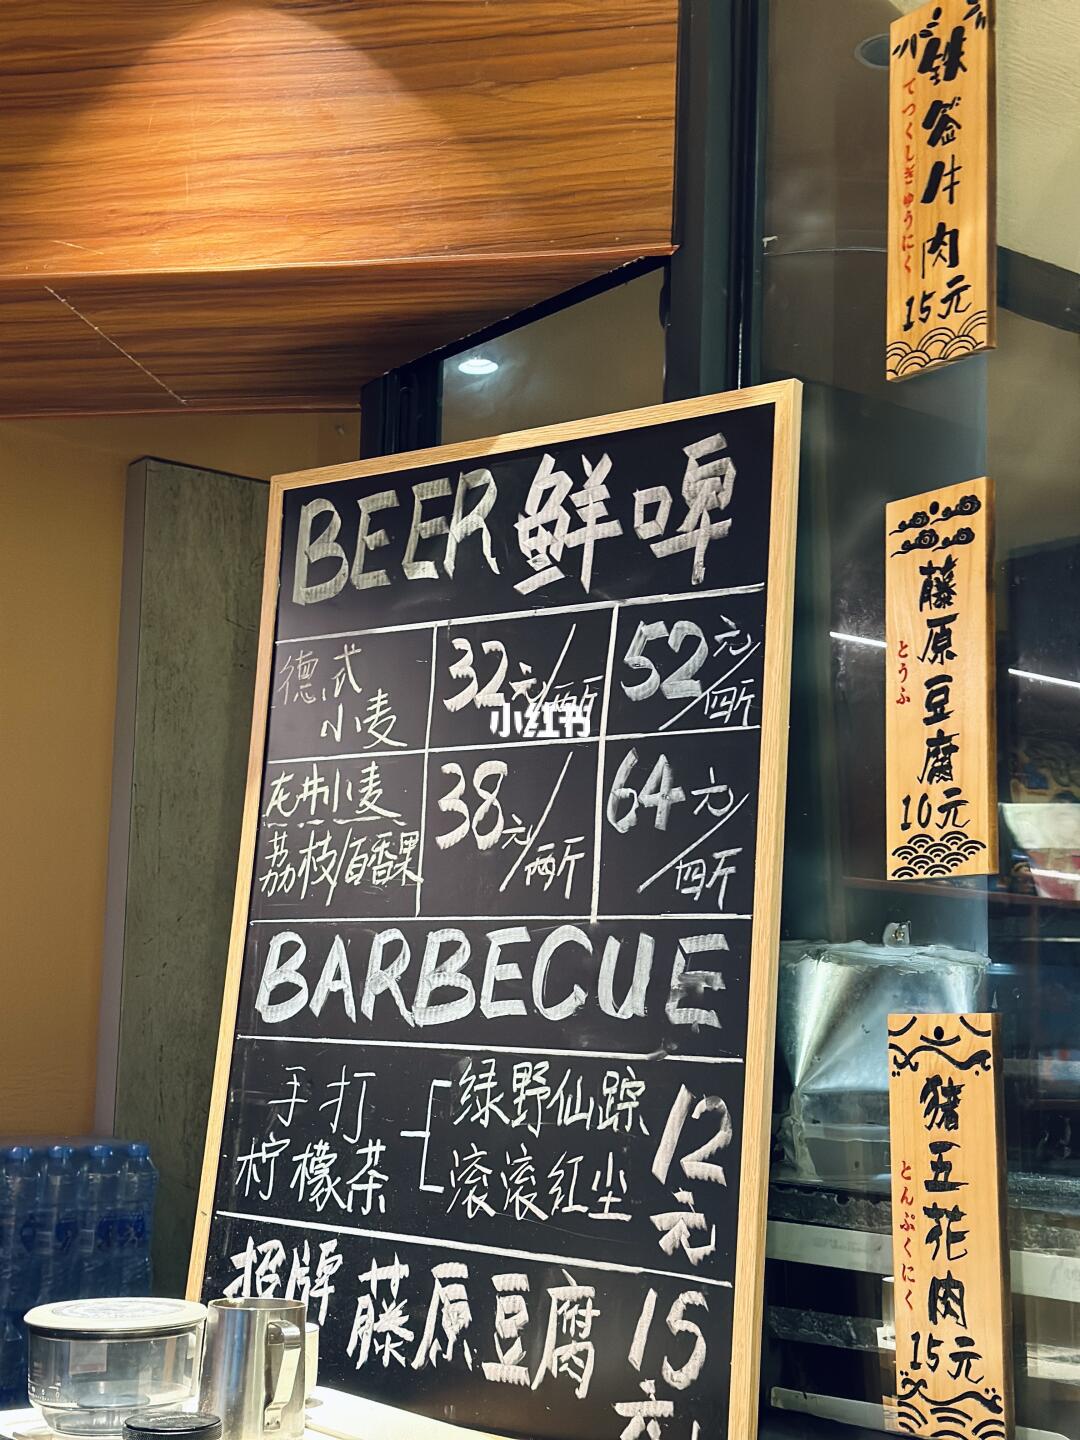 BEER鲜啤
德式
小麦
32元/两斤
52元/四斤
灰制小麦
荔枝/百香果
38元/两斤
64元/四斤
BARBECUE
手打
柠檬茶
绿野仙踪
滚滚红尘
12元
招牌藤原豆腐 15元
铁签牛肉
てつくしぎゅうにく
15元
藤原豆腐
とうふ
10元
猪五花肉
とんぷくにく
15元
小红书